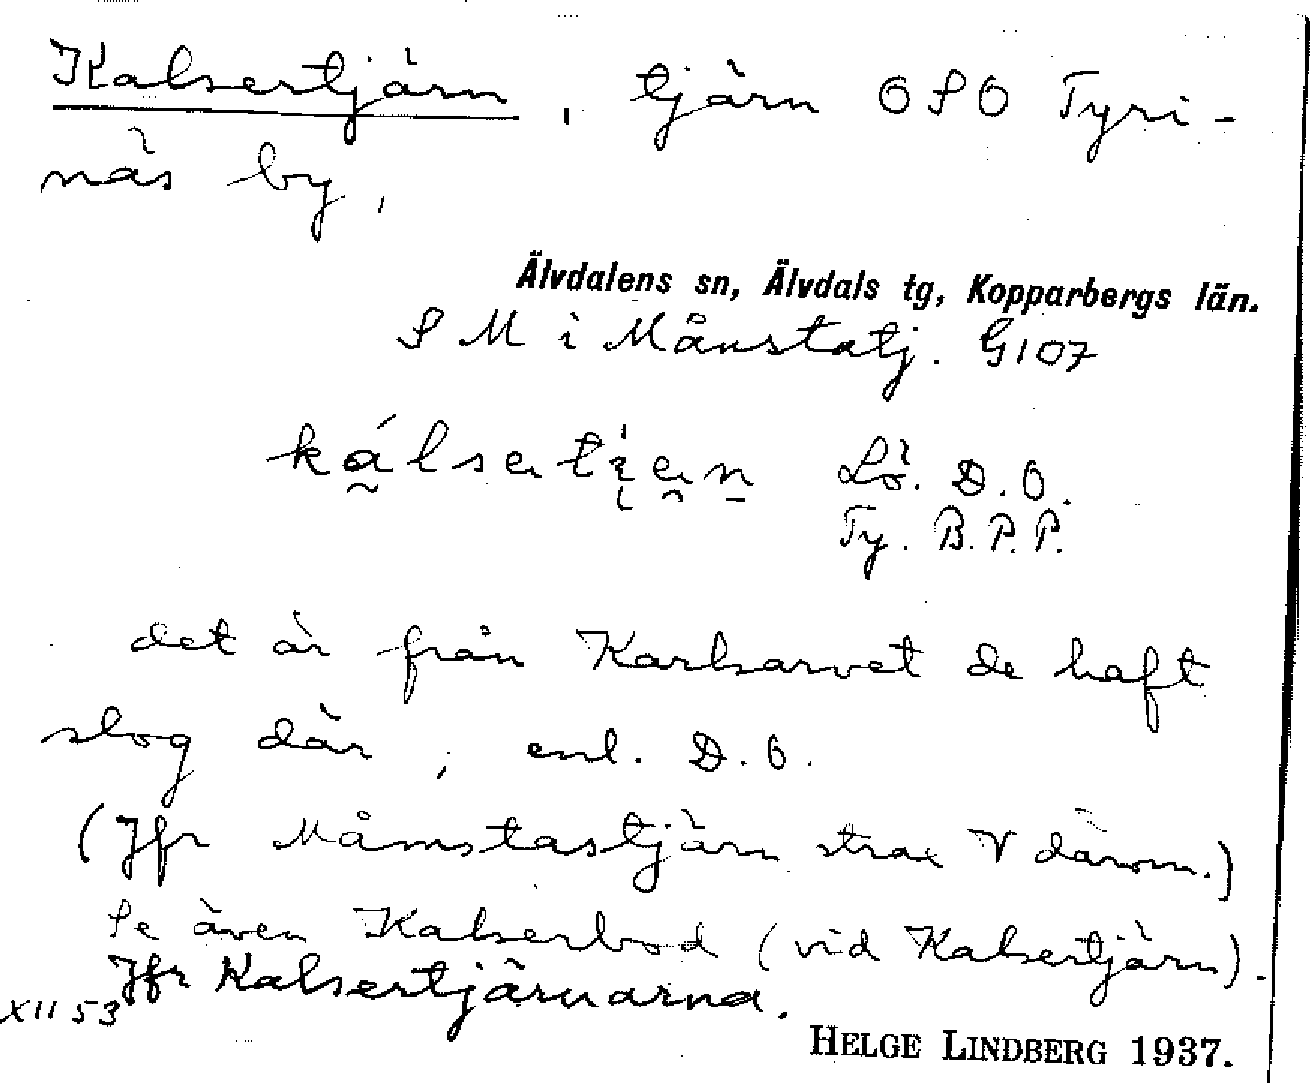 Kalsertjärn, tjärn OSO Tyri-
näs by,
Älvdalens sn, Älvdals tg, Kopparbergs län.
S M i Månstatj. G107
Lö. D.O.
Ty. B.P.P.
det är från Karlsarvet de haft
slog där, enl. D.O.
(Jfr Måmstastjärn strax V därom.)
Se även Kalserbod (vid Kalsertjärn).
Jfr Kalsertjärnarna.
XII 53
HELGE LINDBERG 1937.